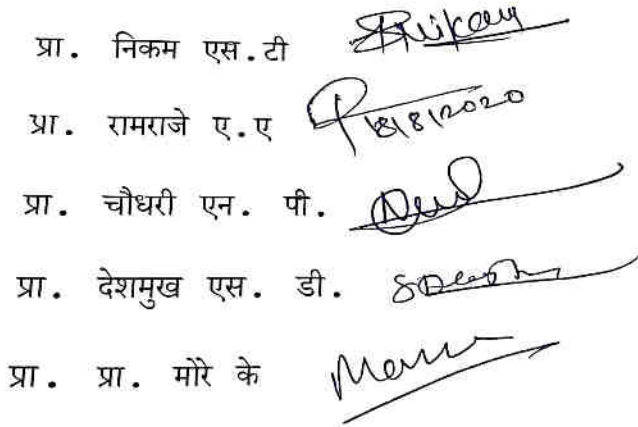 प्रा. निकम एस.टी
प्रा. रामराजे ए.ए 18/8/2020
प्रा. चौधरी एन. पी.
प्रा. देशमुख एस. डी.
प्रा. प्रा. मोरे के